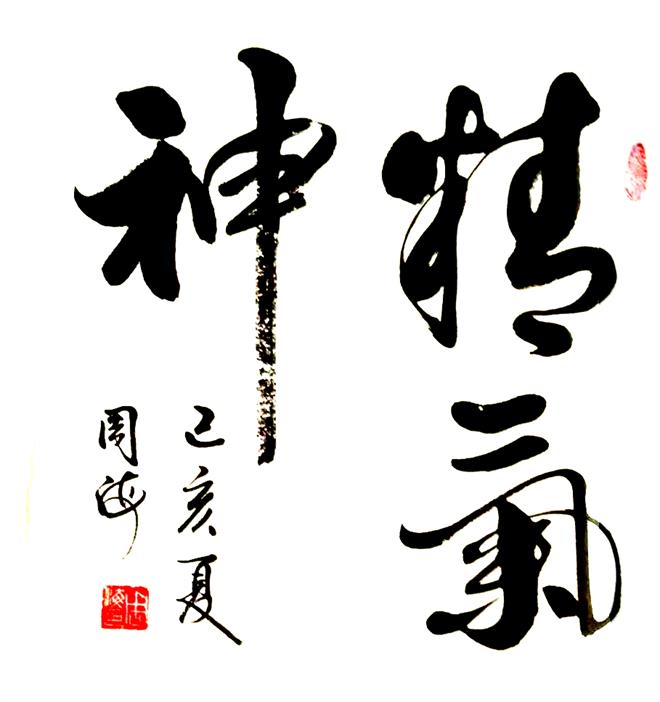 精氣
神
己亥夏
周海